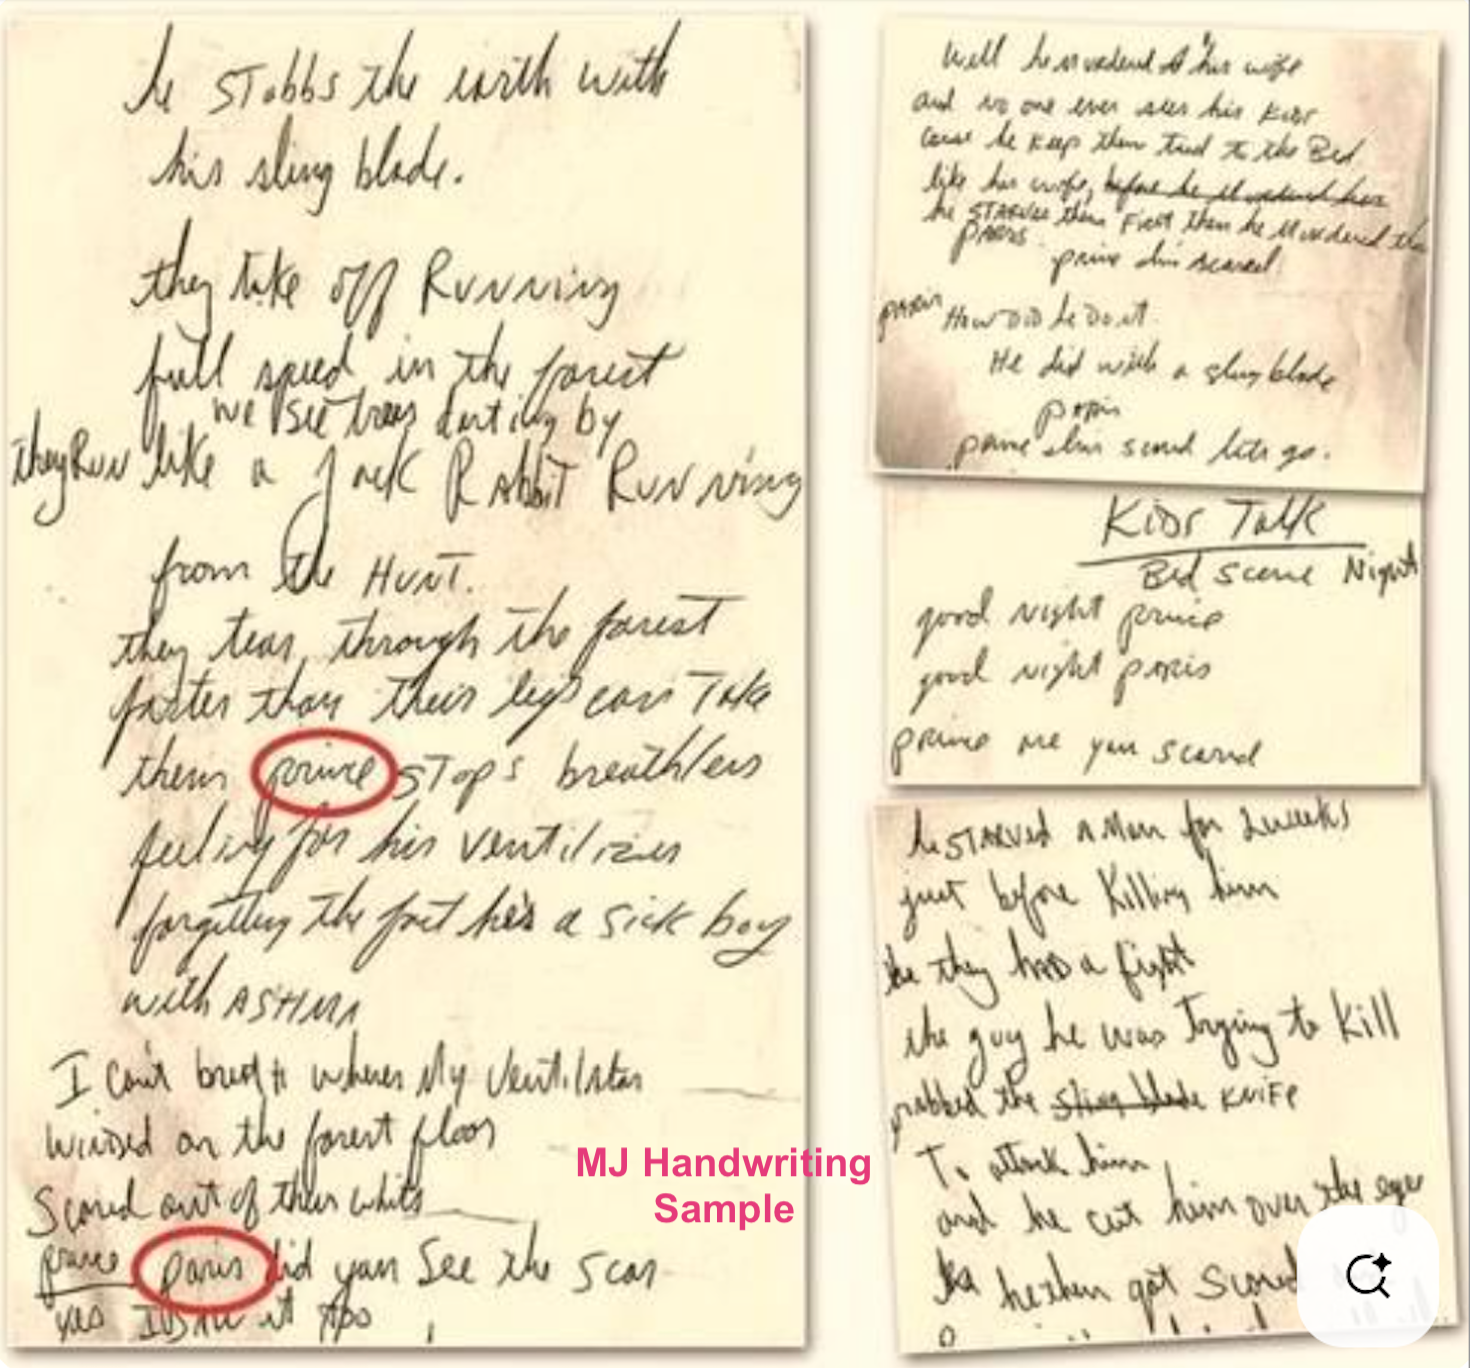 he STabbs the earth with
his sling blade.
they take off Running
full speed in the forest
we See trees darting by
they Run like a Jack Rabbit Running
from the HUNT.
they tear through the forest
faster than their legs can Take
them prince STops breathless
feeling for his ventilizer
forgetting the fact he's a sick boy
with ASTHMA
I can't wheres My Ventilator
on the forest floor
Scared out of their whits
prince paris did you See the scar
yes I SAW it too
Well he murdered his wife
and no one ever sees his KIDS
cause he keep them tied to the Bed
like his wife, before he murdered her
he STARVED them First then he Murdered
PARIS
prince I'm scared
paris How DID he Do it.
He did with a sling blade
paris
prince I'm scared lets go.
KIDS Talk
Bed Scene Night
good night prince
good night paris
prince are you scared
he STARVED A Man for 2 weeks
just before Killing him
they had a fight
the guy he was Trying to Kill
grabbed the sling blade KNIFE
To attack him
and he cut him over the eye
he then got Scared
MJ Handwriting
Sample